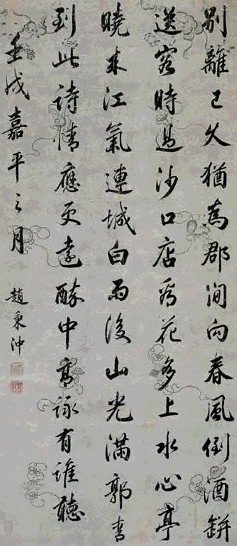 別離已久猶為郡間向春風倒酒缾
送客時過沙口店看花多上水心亭
曉來江氣連城白雨後山光滿郭青
到此詩情應更遠醉中高詠有誰聽
壬戌嘉平之月 趙秉沖